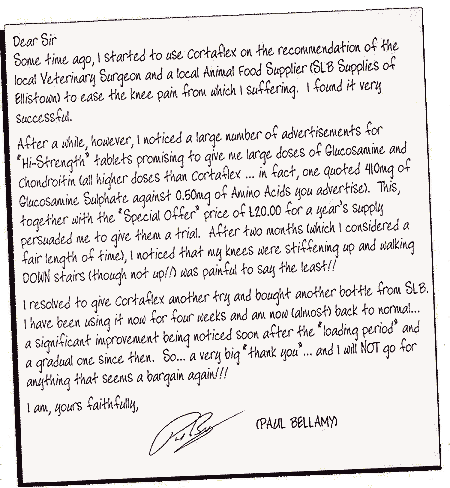 Dear Sir
Some time ago, I started to use Cortaflex on the recommendation of the
local Veterinary Surgeon and a local Animal Food Supplier (SLB Supplies of
Ellistown) to ease the knee pain from which I suffering. I found it very
successful.
After a while, however, I noticed a large number of advertisements for
"Hi-Strength" tablets promising to give me large doses of Glucosamine and
Chondroitin (all higher doses than Cortaflex ... in fact, one quoted 410mg of
Glucosamine Sulphate against 0.50mg of Amino Acids you advertise). This,
together with the "Special Offer" price of £20.00 for a year's supply
persuaded me to give them a trial. After two months (which I considered a
fair length of time), I noticed that my knees were stiffening up and walking
DOWN stairs (though not up!!) was painful to say the least!!
I resolved to give Cortaflex another try and bought another bottle from SLB.
I have been using it now for four weeks and am now (almost) back to normal...
a significant improvement being noticed soon after the "loading period" and
a gradual one since then. So... a very big "thank you"... and I will NOT go for
anything that seems a bargain again!!!
I am, yours faithfully,
(PAUL BELLAMY)